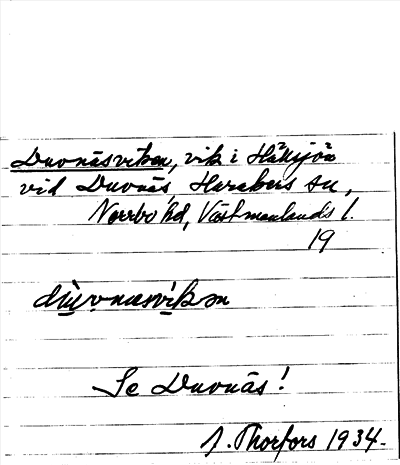 Duvnäsviken, vik i Hällsjön
vid Duvnäs, Harakers sn,
Norrbo hd, Västmanlands l.
19
dùvnæsvìkən
Se Duvnäs!
J. Thorfors 1934.